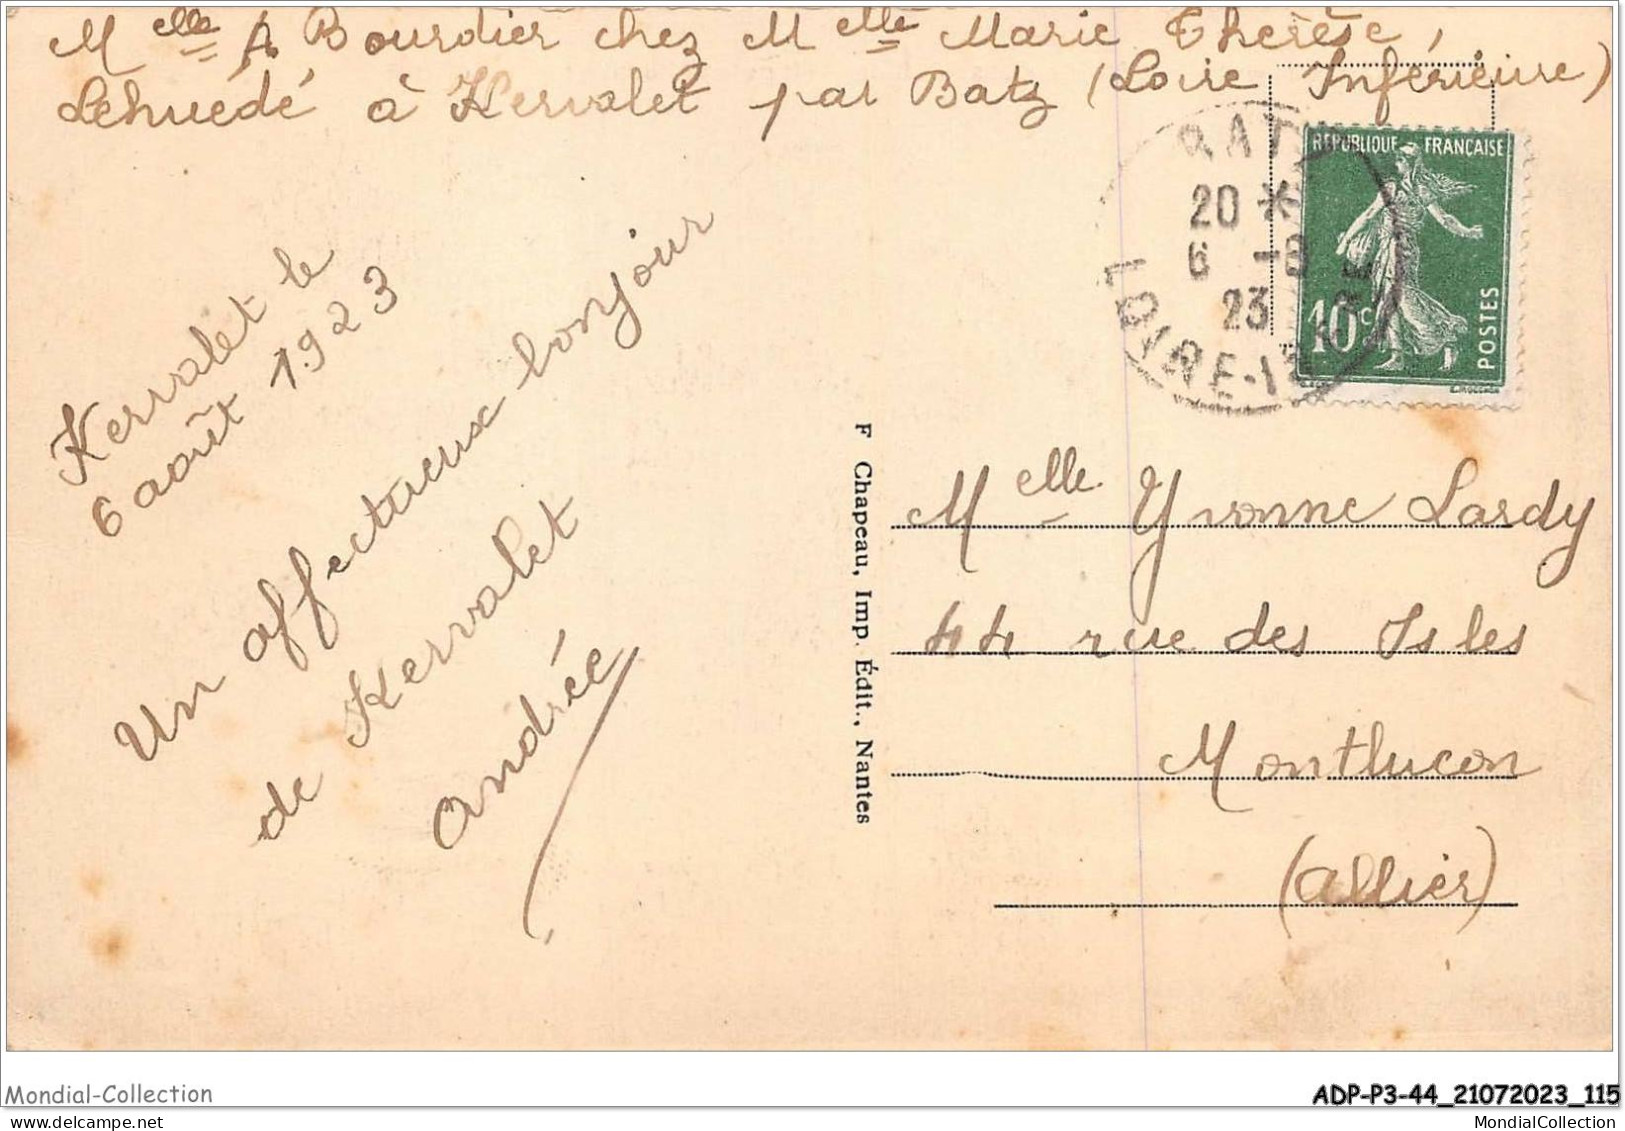 Melle A Bourdier chez Melle Marie Thérèse,
Lehuédé à Kervalet par Batz (Loire Inférieure)
BATZ
20 *
6 -8
23
LOIRE-INF
REPUBLIQUE FRANÇAISE
10c
POSTES
Kervalet le
6 août 1923
Un affectueux bonjour
de Kervalet
Andrée
F Chapeau, Imp. Édit., Nantes
Melle Yvonne Lardy
44 rue des Isles
Montluçon
(Allier)
Mondial-Collection
ADP-P3-44_21072023_115
MondialCollection